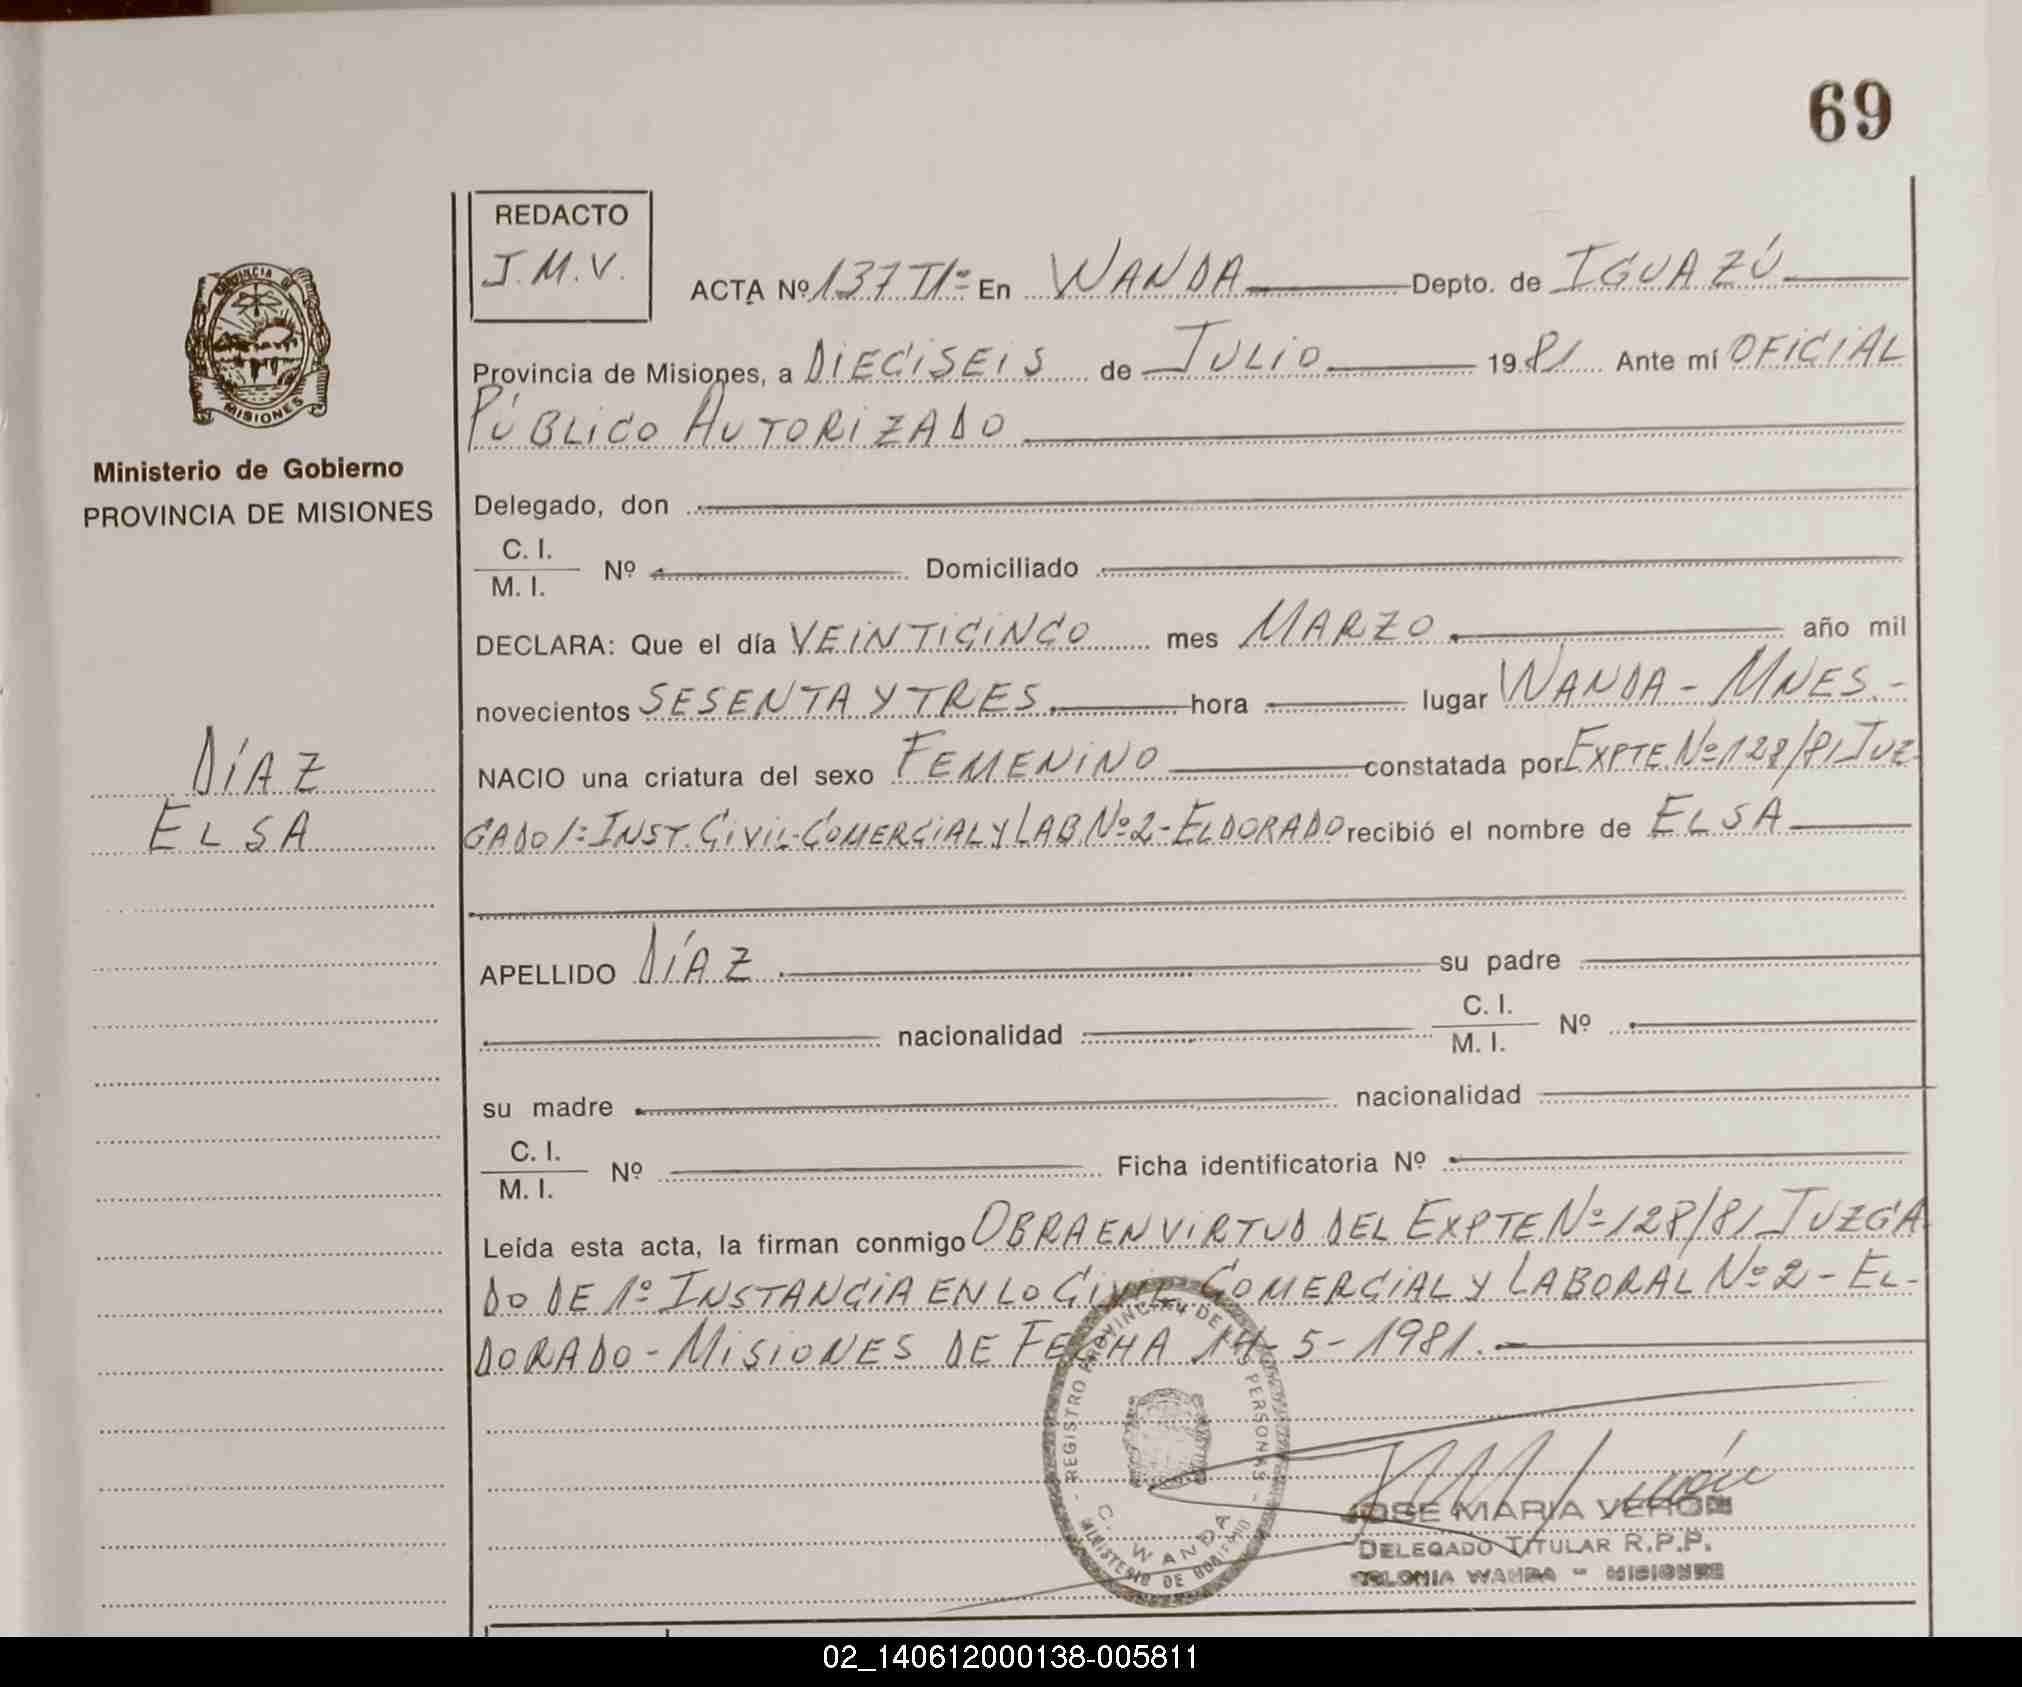 69
REDACTO
J.M.V.
ACTA Nº 137 TIº En WANDA Depto. de IGUAZÚ
Provincia de Misiones, a DIECISEIS de JULIO 1981 Ante mí OFICIAL
PÚBLICO AUTORIZADO
PROVINCIA DE
MISIONES
Ministerio de Gobierno
PROVINCIA DE MISIONES
Delegado, don
C. I.
M. I.
Nº Domiciliado
DECLARA: Que el día VEINTICINCO mes MARZO año mil
novecientos SESENTA Y TRES hora lugar WANDA - MNES.-
DÍAZ
ELSA
NACIO una criatura del sexo FEMENINO constatada por EXPTE. Nº 128/81 JUZ-
GADO 1º INST. CIVIL-COMERCIAL Y LAB. Nº 2 - ELDORADO recibió el nombre de ELSA
APELLIDO DÍAZ su padre
nacionalidad C. I.
M. I. Nº
su madre nacionalidad
C. I.
M. I. Nº Ficha identificatoria Nº
Leída esta acta, la firman conmigo OBRA EN VIRTUD DEL EXPTE. Nº 128/81 JUZGA-
DO DE 1º INSTANCIA EN LO CIVIL COMERCIAL Y LABORAL Nº 2 - EL-
DORADO - MISIONES DE FECHA 14-5-1981.-
REGISTRO PROVINCIAL DE LAS PERSONAS
C. WANDA
MINISTERIO DE GOBIERNO
JOSE MARIA VERON
DELEGADO TITULAR R.P.P.
COLONIA WANDA - MISIONES
02_140612000138-005811